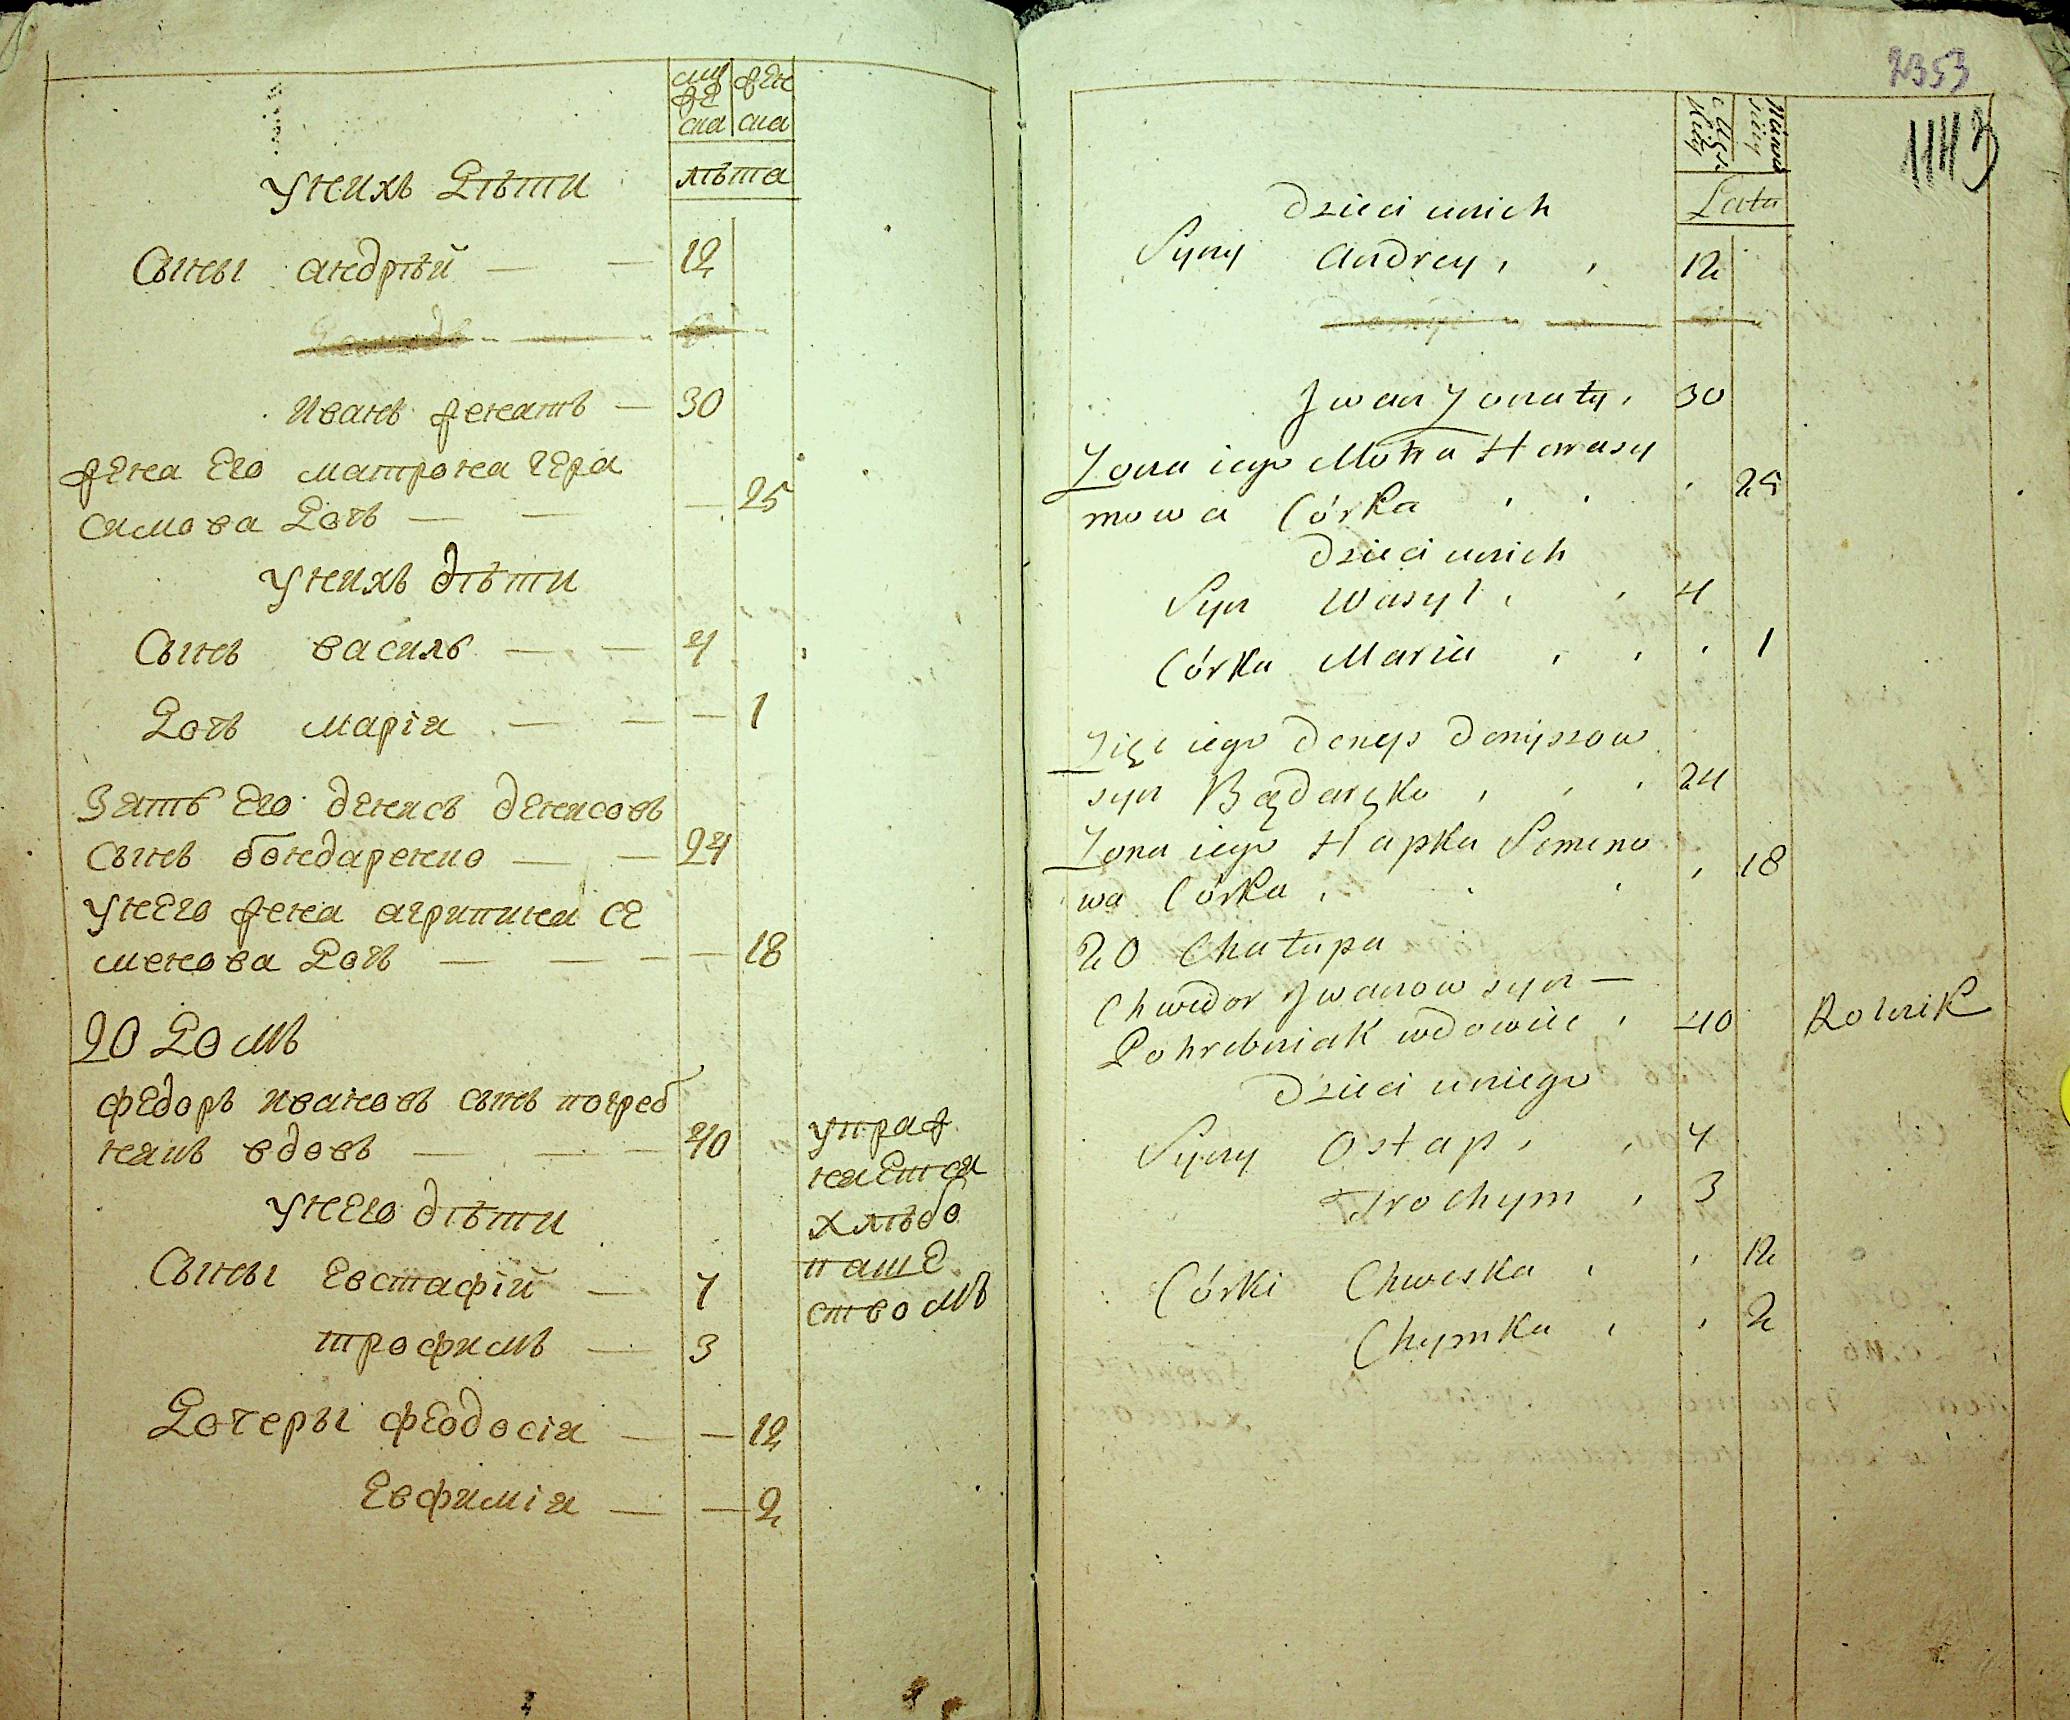 муже
ска
жен
ска
лѣта
у нихъ дѣти
Сыны андрѣй — — 12
иванъ женатъ — 30
жена Его матрона гера
симова дочь — — — 25
у нихъ дѣти
Сынъ василь — — 4
дочь марія — — — 1
Зять Его денисъ денисовъ
сынъ бондаренко — — 24
у нЕго жена агрипина сЕ
менова дочь — — — — 18
20 домъ
ФЕдоръ ивановъ сынъ погреб
някъ вдовъ — — — 40
у нЕго дѣти
Сыны Евстафій — 7
трофимъ — 3
Дочеры феодосія — — 12
Евфимія — — 2
упраж
няЕтся
хлѣбо
пашЕ
ствомъ
2353
1143
Męzs
kiey
Lata
Dzieci unich
Syny Andrey 12
Jwan Żonaty 30
Żona iego Motra Harasy
mowa Córka 25
Dzieci unich
Syn Wasyl 4
Córka Maria 1
Zięć iego Denys Denyszow
syn Bądaręko 24
Żona iego Hapka Semeno
wa Córka 18
20 Chałupa
Chwedor Jwanow syn —
Pohrebniak wdowiec 40 Rolnik
Dzieci uniego
Syny Ostap 7
Trochym 3
Córki Chweska 12
Chymka 2